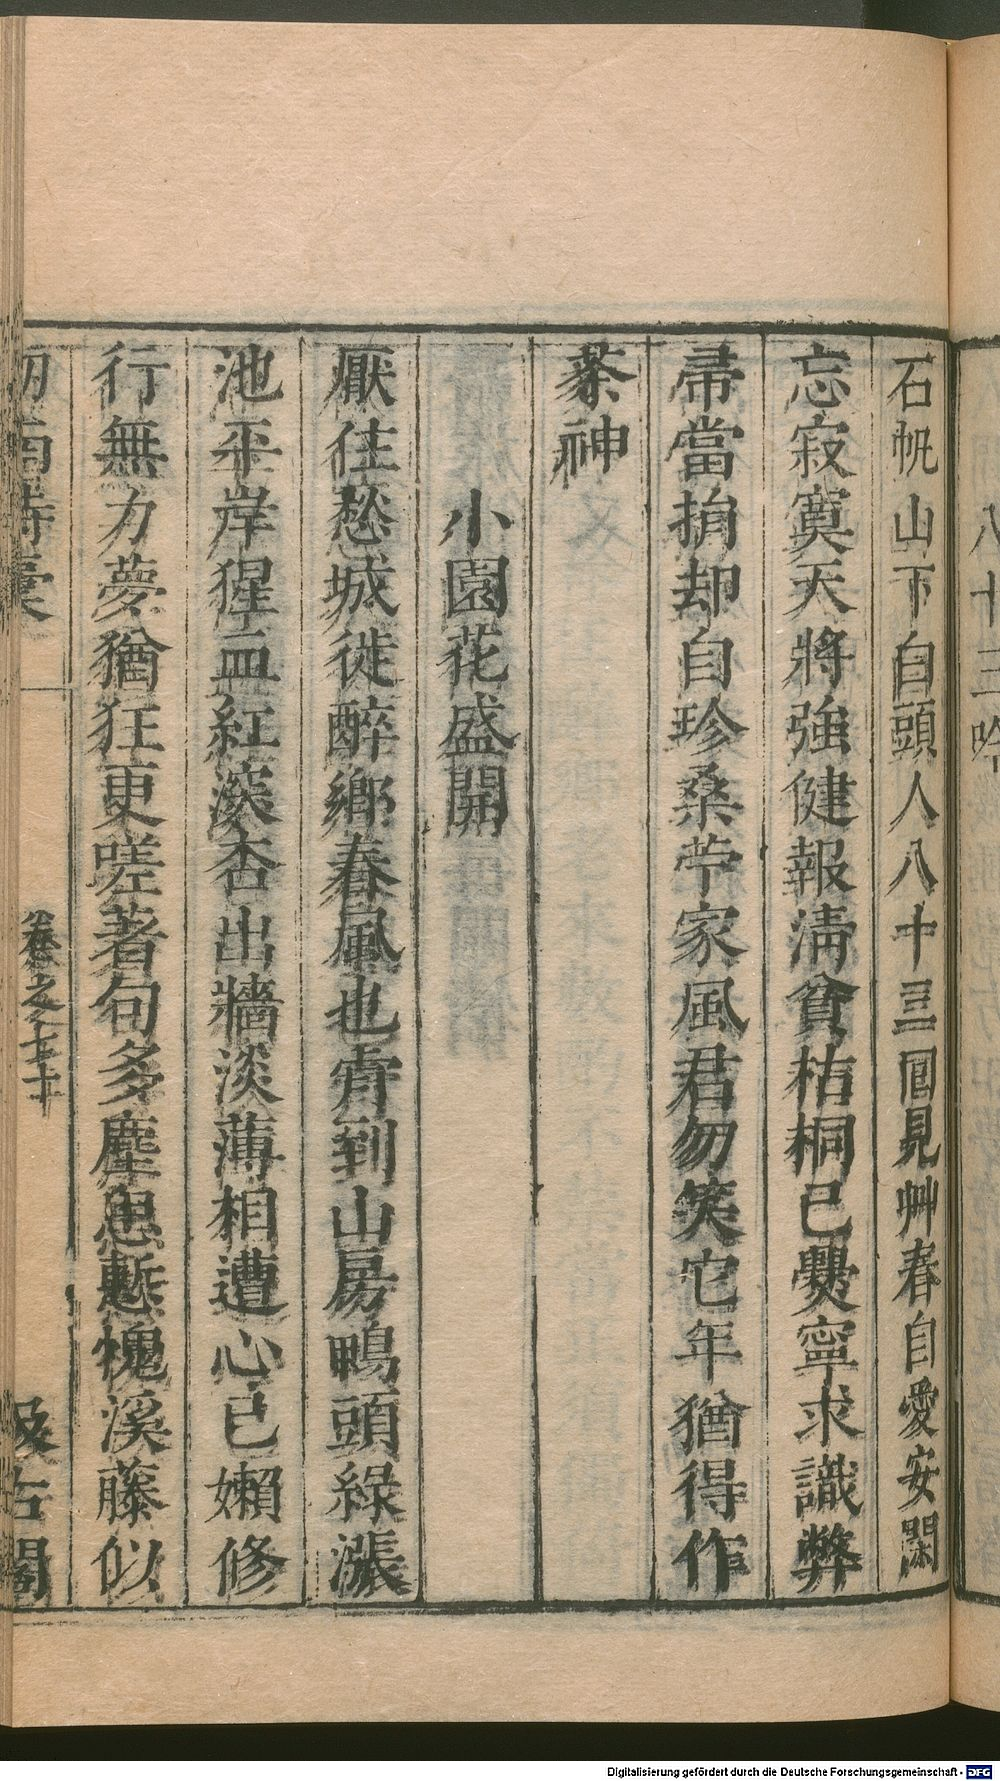 八十三吟
石帆山下白頭人八十三囘見艸春自愛安閑
忘寂寞天將強健報淸貧枯桐已爨寧求識弊
帚當捐却自珍桑苧家風君勿笑它年猶得作
茶神
小園花盛開
厭住愁城徙醉鄉春風也肯到山房鴨頭綠漲
池平岸猩血紅深杏出牆淡薄相遭心已嬾修
行無力夢猶狂更嗟著句多塵思慙愧溪藤似
劒南詩稾
卷之七十
汲古閣
Digitalisierung gefördert durch die Deutsche Forschungsgemeinschaft - DFG